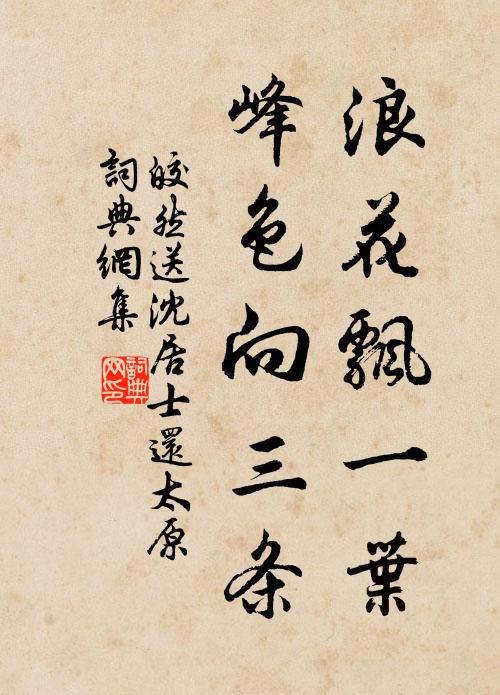 浪花飄一葉
峰色向三条
皎然送沈居士還太原
詞典網集
詞典網印